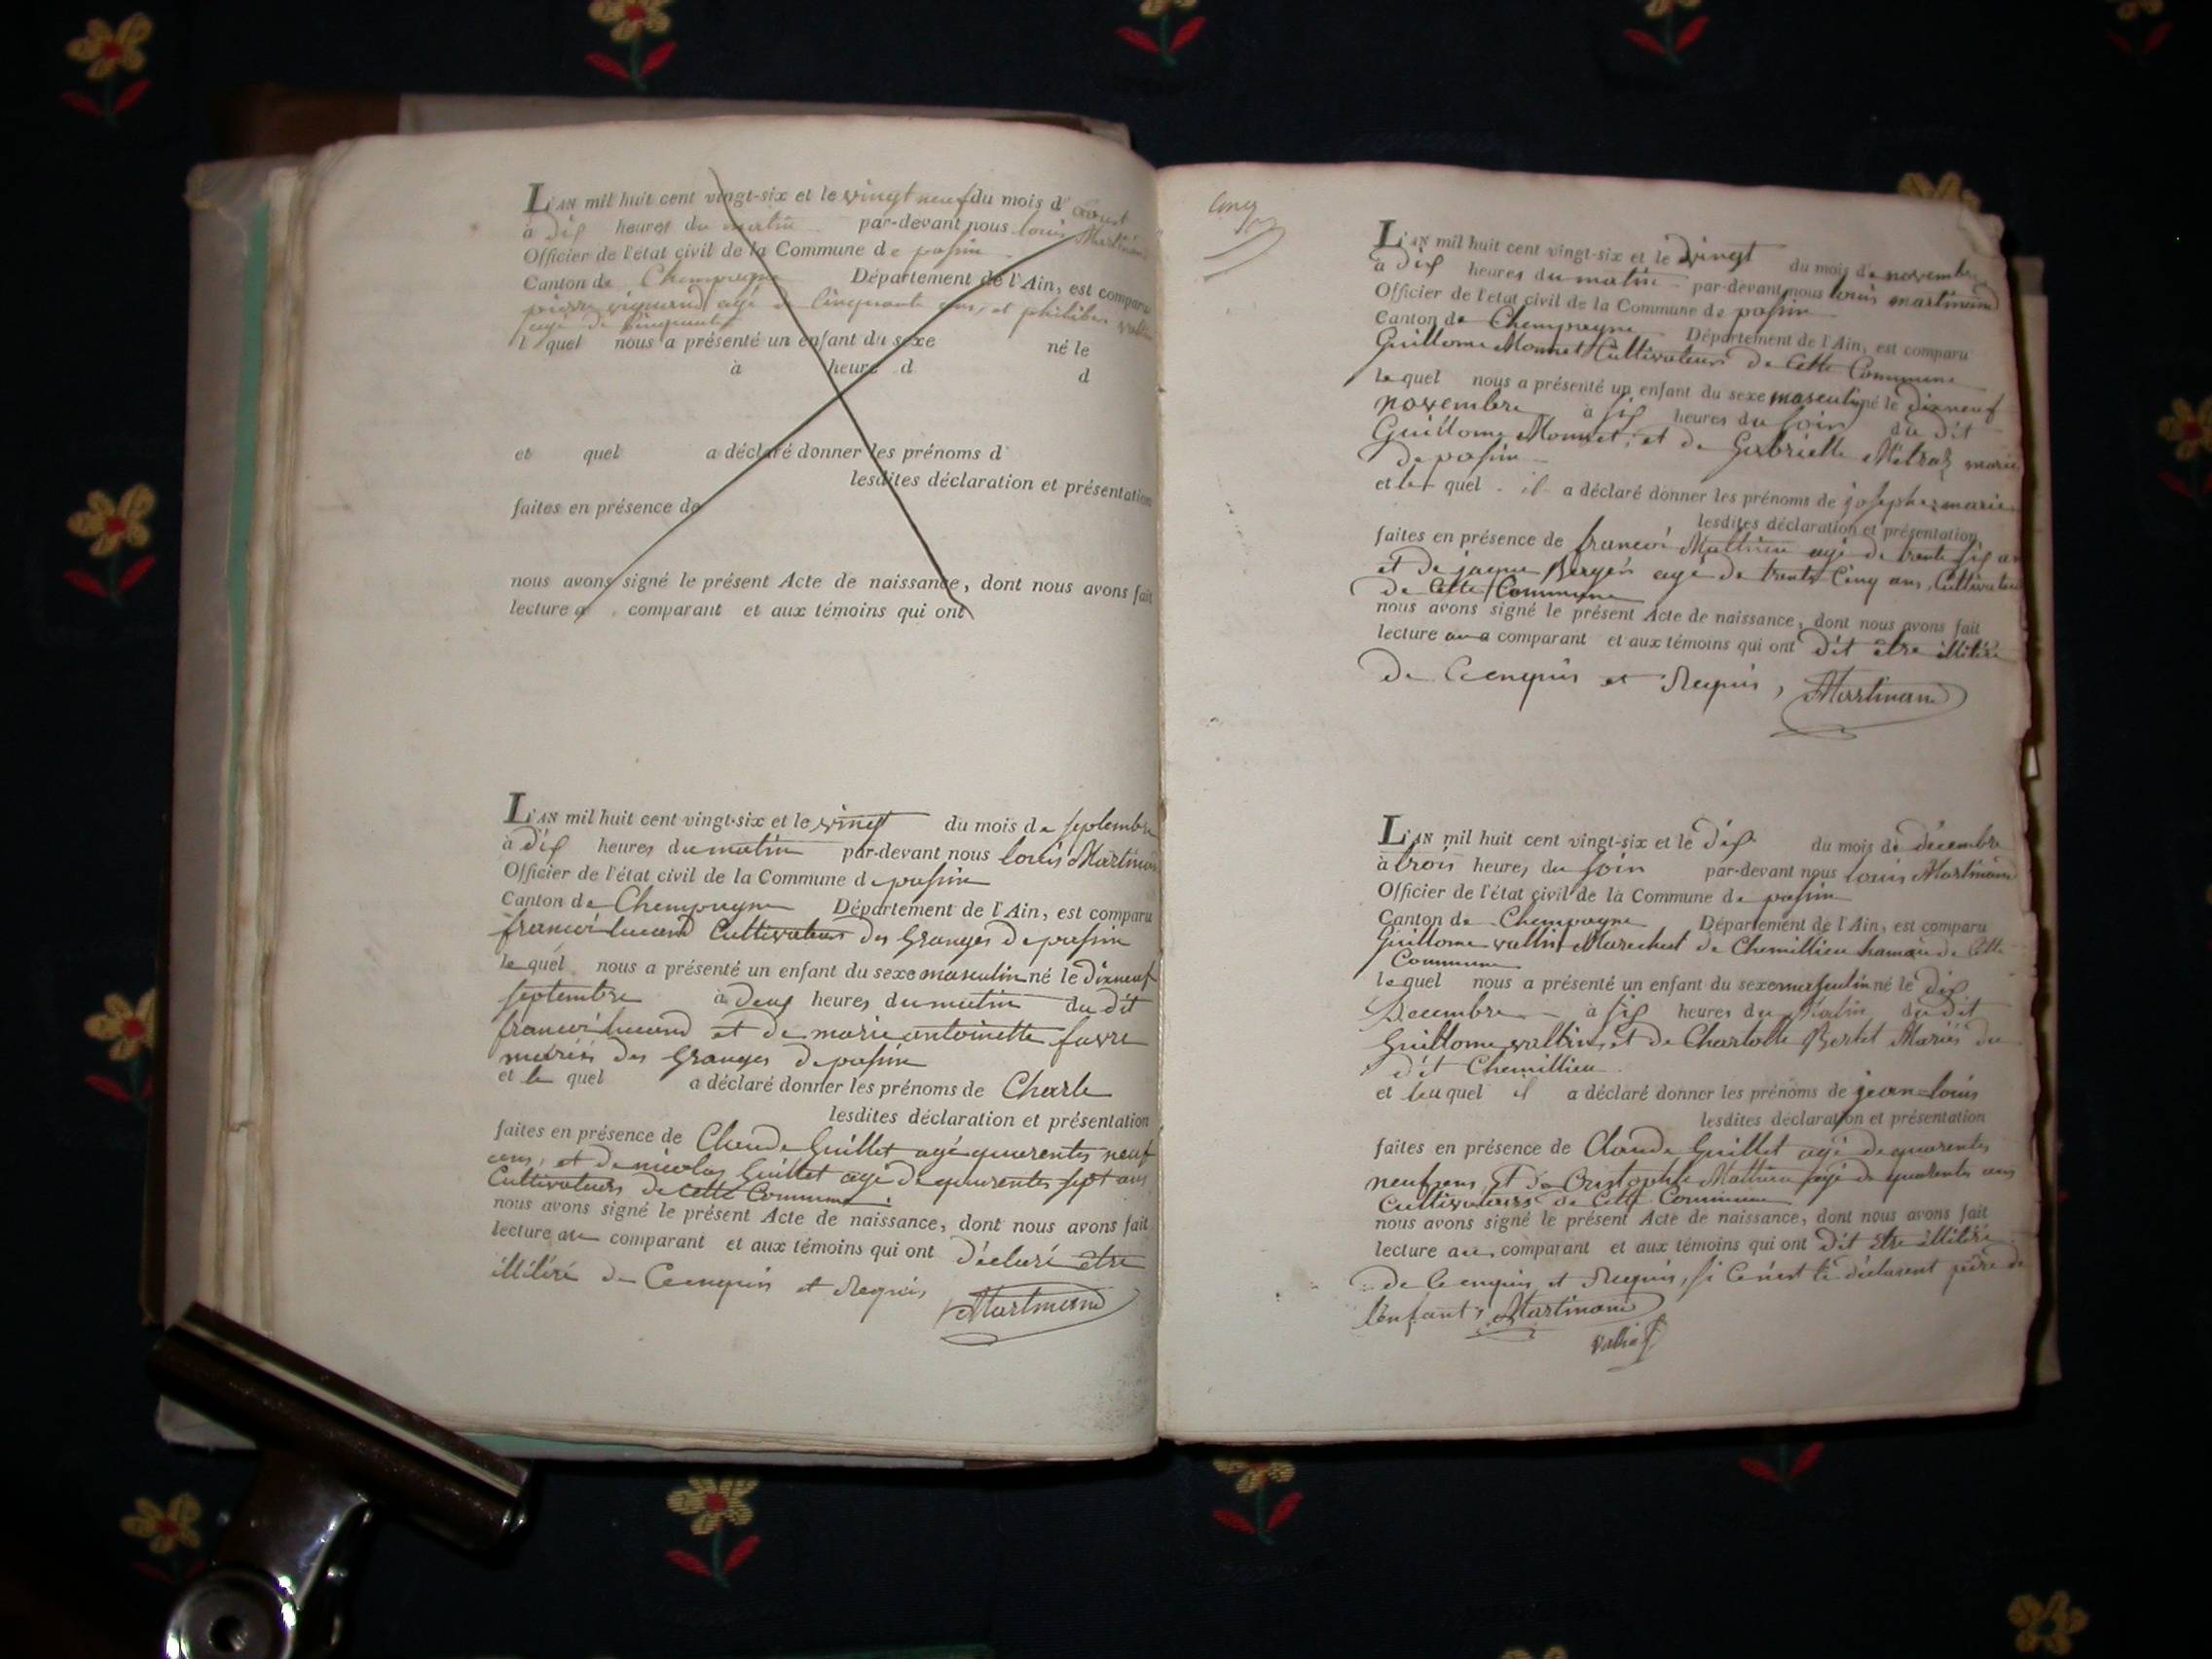 L'AN mil huit cent vingt-six et le vingt neuf du mois d' aoust
à dix heures du matin par-devant nous louis Martinand
Officier de l'état civil de la Commune de passin
Canton de Champagne Département de l'Ain, est comparu
pierre agé de Cinquante ans, et philiber
agé de Cinquante
l quel nous a présenté un enfant du sexe né le
à heure d d
et quel a déclaré donner les prénoms d
lesdites déclaration et présentation
faites en présence de
nous avons signé le présent Acte de naissance, dont nous avons fait
lecture a comparant et aux témoins qui ont
L'AN mil huit cent vingt-six et le vingt du mois de septembre
à dix heures du matin par-devant nous louis Martinand
Officier de l'état civil de la Commune de passin
Canton de Champagne Département de l'Ain, est comparu
francoi lucand Cultivateur des Granges de passin
le quel nous a présenté un enfant du sexe masculin né le dixneuf
septembre à deux heures du matin du dit
francoi lucand et de marie antoinette favre
mariés des Granges de passin
et le quel a déclaré donner les prénoms de Charle
lesdites déclaration et présentation
faites en présence de Claude Guillet agé quarentes neuf
ans, et de nicolas Guillet agé de quarentes sept ans
Cultivateurs de cette Commune.
nous avons signé le présent Acte de naissance, dont nous avons fait
lecture au comparant et aux témoins qui ont déclaré être
illitéré de Ce enquis et Requis Martinand
Cinq
L'AN mil huit cent vingt-six et le vingt du mois de novembre
à dix heures du matin par-devant nous louis martinand
Officier de l'état civil de la Commune de passin
Canton de Champagne Département de l'Ain, est comparu
Guillome Monnet Cultivateur de Cette Commune
le quel nous a présenté un enfant du sexe masculin né le dixneuf
novembre à six heures du soir du dit
Guillome Monnet, et de Gabrielle Métraz marié
de passin
et le quel il a déclaré donner les prénoms de joseph marie
lesdites déclaration et présentation
faites en présence de francoi Mathieu agé de trente six an
et de jaque Berger agé de trente Cinq ans, Cultivateur
de Cette Commune
nous avons signé le présent Acte de naissance, dont nous avons fait
lecture au comparant et aux témoins qui ont dit être illitéré
de Ce enquis et Requis, Martinand
L'AN mil huit cent vingt-six et le dix du mois de décembre
à trois heures du soir par-devant nous louis Martinand
Officier de l'état civil de la Commune de passin
Canton de Champagne Département de l'Ain, est comparu
Guillome vallin Marechal de Chemillieu hamau de Cette
Commune
le quel nous a présenté un enfant du sexe masculin né le dix
Decembre à six heures du Matin du dit
Guillome vallin, et de Charlotte Bertet Mariés du
dit Chemillieu
et le quel il a déclaré donner les prénoms de jean louis
lesdites déclaration et présentation
faites en présence de Claude Guillet agé de quarentes
neuf ans, Et de Cristophle Mathieu agé de quarentes ans
Cultivateurs de Cette Commune
nous avons signé le présent Acte de naissance, dont nous avons fait
lecture au comparant et aux témoins qui ont dit être illitéré
de Ce enquis et Requis, si Ce n'est le déclarent père de
l'enfant, Martinand
vallin